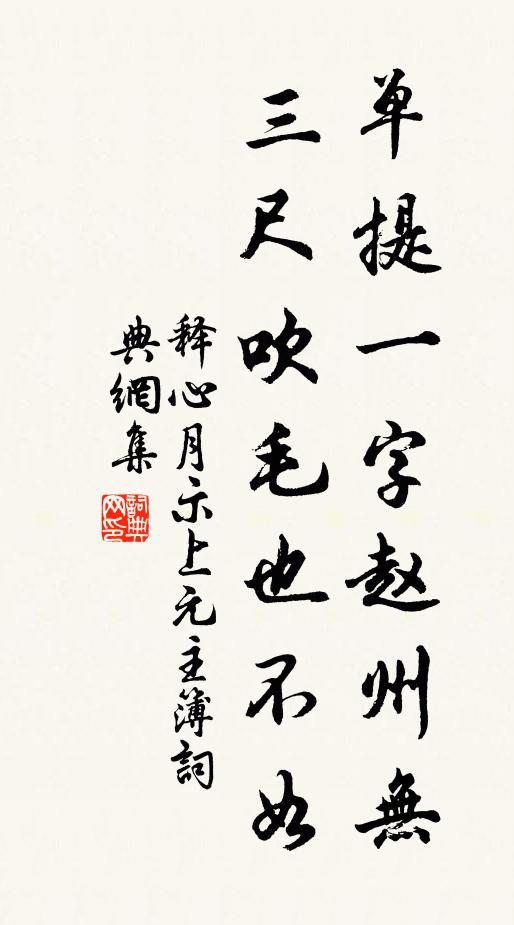 单提一字赵州無
三尺吹毛也不如
释心月示上元主簿詞
典網集
詞典網印